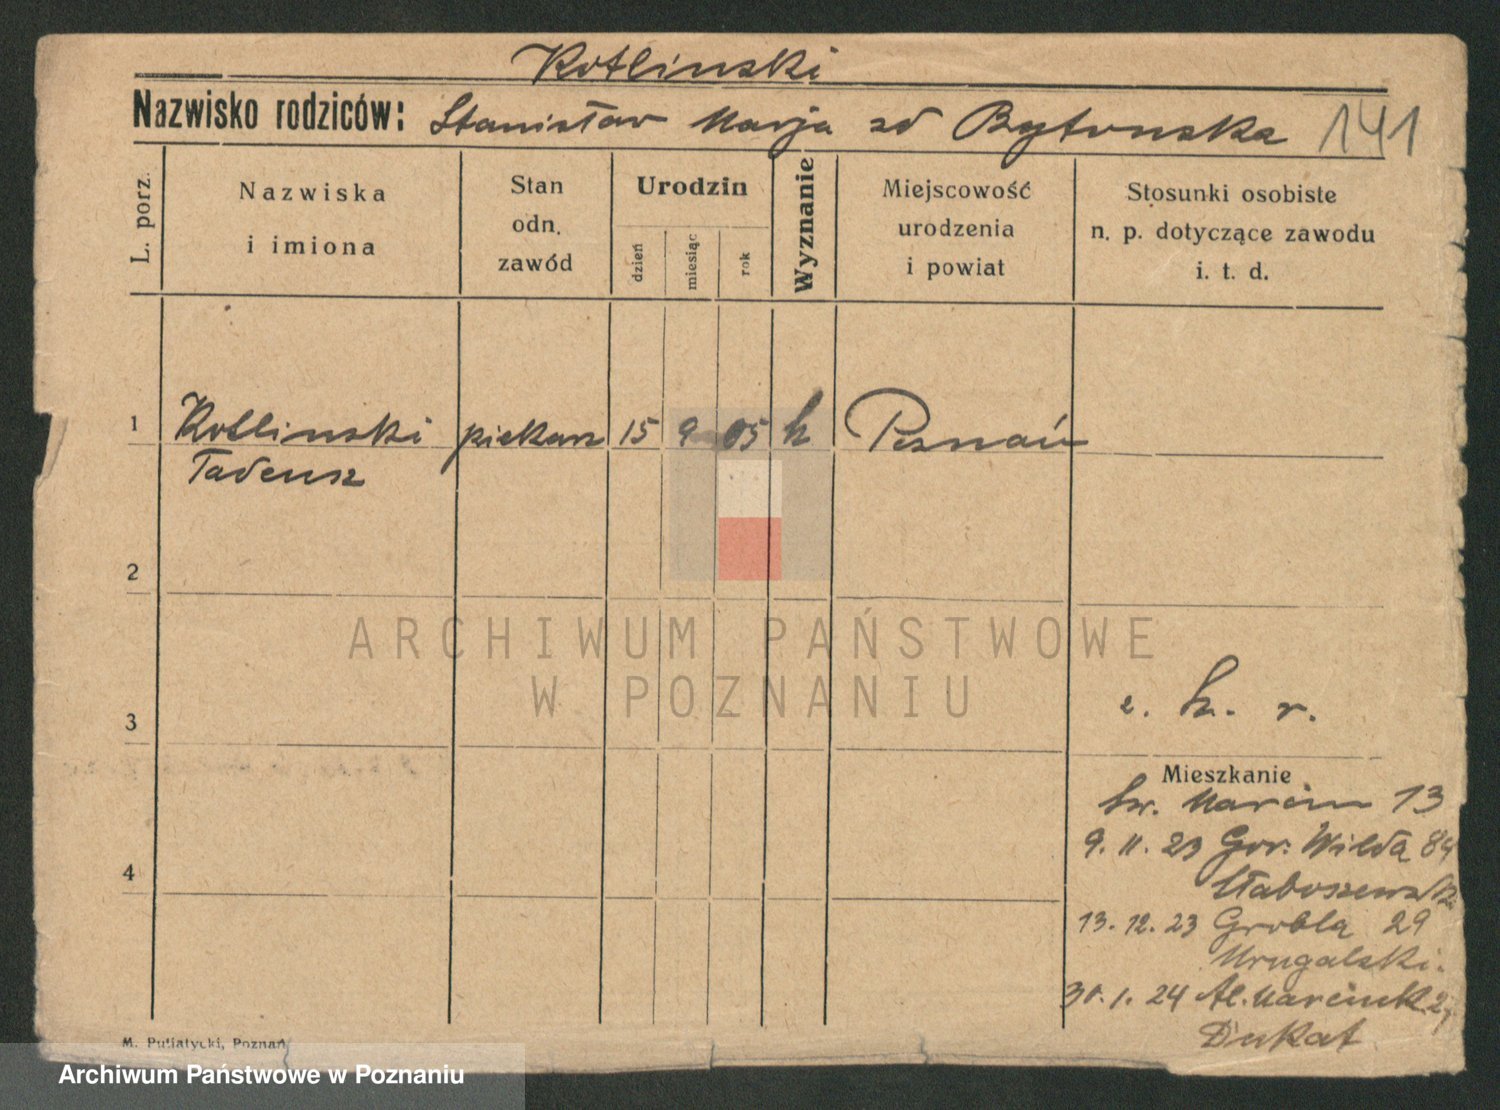 Kotlinski
Nazwisko rodziców: Stanisław Marja zd Bytonska 141
L. porz.
Nazwiska
i imiona
Stan
odn.
zawód
Urodzin
dzień
miesiąc
rok
Wyznanie
Miejscowość
urodzenia
i powiat
Stosunki osobiste
n. p. dotyczące zawodu
i. t. d.
1 Kotlinski piekarz 15 9 05 k Poznań
Tadeusz
2
ARCHIWUM PAŃSTWOWE
W POZNANIU
3
Mieszkanie
św. Marcin 13
9. 11. 23 Gór. Wilda 84
4
13. 12. 23 Grobla 29
Mrugalski.
30. 1. 24 Al. Marcink.
Dukat
M. Putiatycki, Poznań
Archiwum Państwowe w Poznaniu